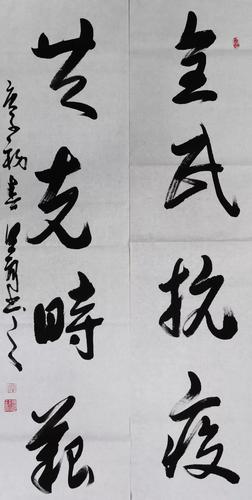 全民抗疫
共克時艱
庚子初春